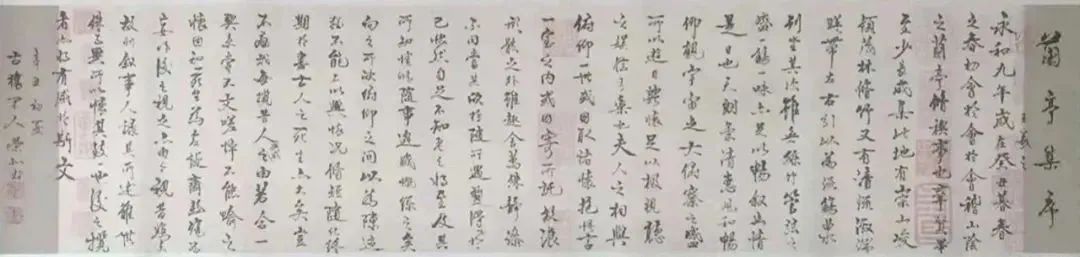 蘭亭集序
王羲之
永和九年歲在癸丑暮春
之春初會於會稽山陰
之蘭亭修禊事也群賢畢
至少長咸集此地有崇山峻
領茂林修竹又有清流激湍
暎帶左右引以為流觴曲水
列坐其次雖無絲竹管弦之
盛觴一詠亦足以暢叙幽情
是日也天朗氣清惠風和暢
仰觀宇宙之大俯察之盛
所以遊目騁懷足以極視聽
之娛信可樂也夫人之相與
俯仰一世或因取諸懷抱悟言
一室之內或因寄所託放浪
形骸之外雖趣舍萬殊靜躁
不同當其欣於所遇暫得於
己快然自足不知老之將至及其
所之情隨事遷感慨係之矣
向之所欣俯仰之間以為陳迹
猶不能不以興懷況修短隨化終
期於盡古人云死生亦大矣豈
不痛哉每攬昔人之由若合一
契未嘗不文嗟悼不能喻之
懷固知死生為虛誕齊彭殤為
妄作後之視今亦由今之視昔悲夫
故列叙時人錄其所述雖世
殊事異所以懷其致一也後之攬
者亦將有感於斯文
辛丑初夏
古人書